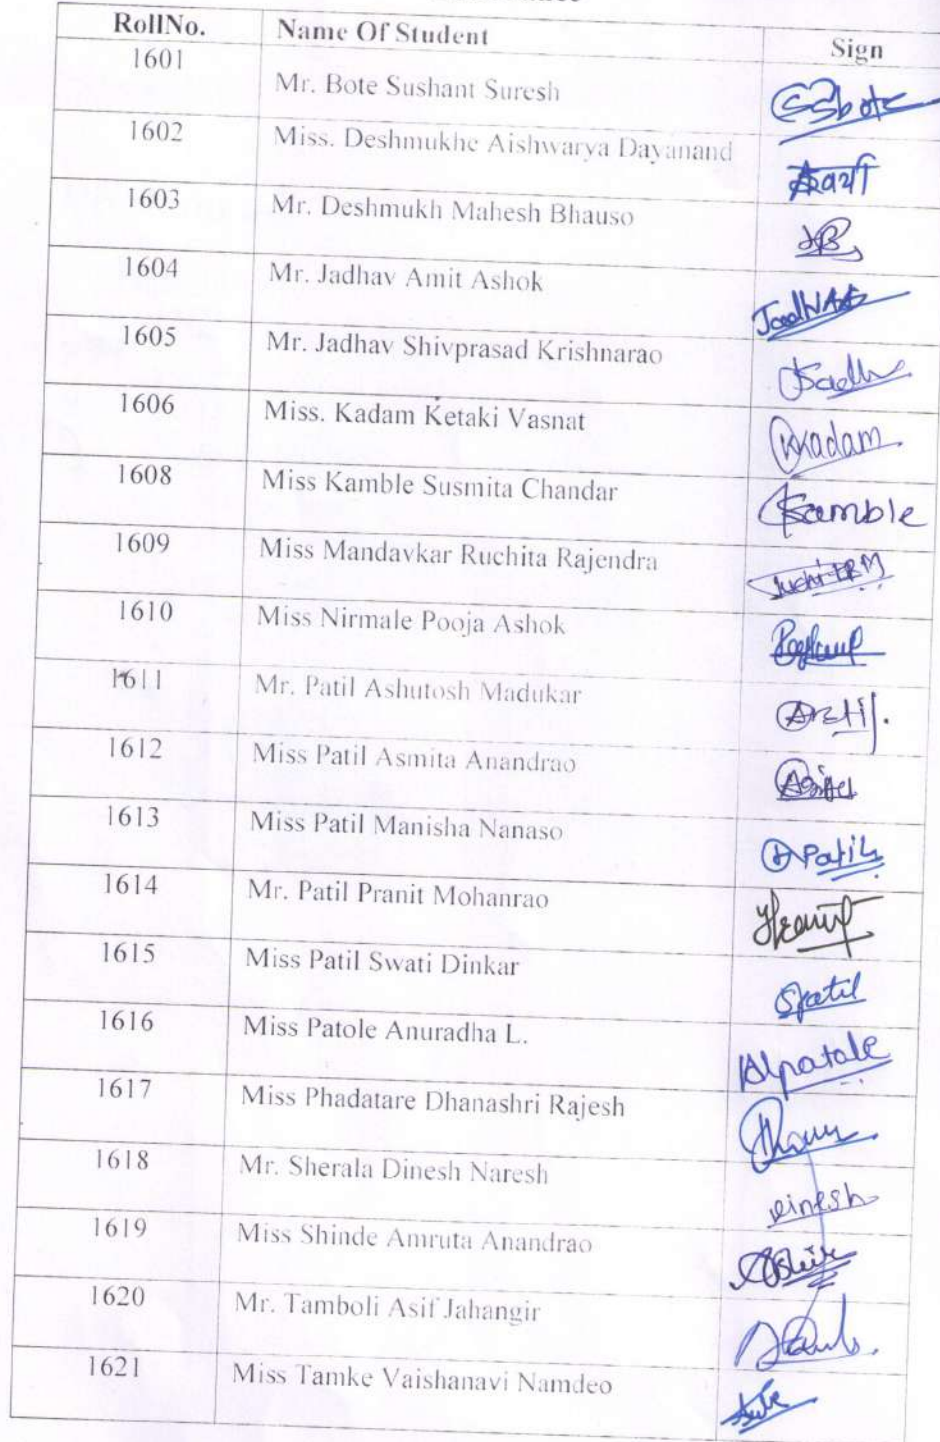 RollNo. Name Of Student Sign
1601 Mr. Bote Sushant Suresh SSbote
1602 Miss. Deshmukhe Aishwarya Dayanand
1603 Mr. Deshmukh Mahesh Bhauso
1604 Mr. Jadhav Amit Ashok
1605 Mr. Jadhav Shivprasad Krishnarao
1606 Miss. Kadam Ketaki Vasnat KKadam
1608 Miss Kamble Susmita Chandar Kamble
1609 Miss Mandavkar Ruchita Rajendra
1610 Miss Nirmale Pooja Ashok
1611 Mr. Patil Ashutosh Madukar
1612 Miss Patil Asmita Anandrao
1613 Miss Patil Manisha Nanaso Patil
1614 Mr. Patil Pranit Mohanrao
1615 Miss Patil Swati Dinkar Spatil
1616 Miss Patole Anuradha L. ALpatole
1617 Miss Phadatare Dhanashri Rajesh
1618 Mr. Sherala Dinesh Naresh Dinesh
1619 Miss Shinde Amruta Anandrao
1620 Mr. Tamboli Asif Jahangir
1621 Miss Tamke Vaishanavi Namdeo